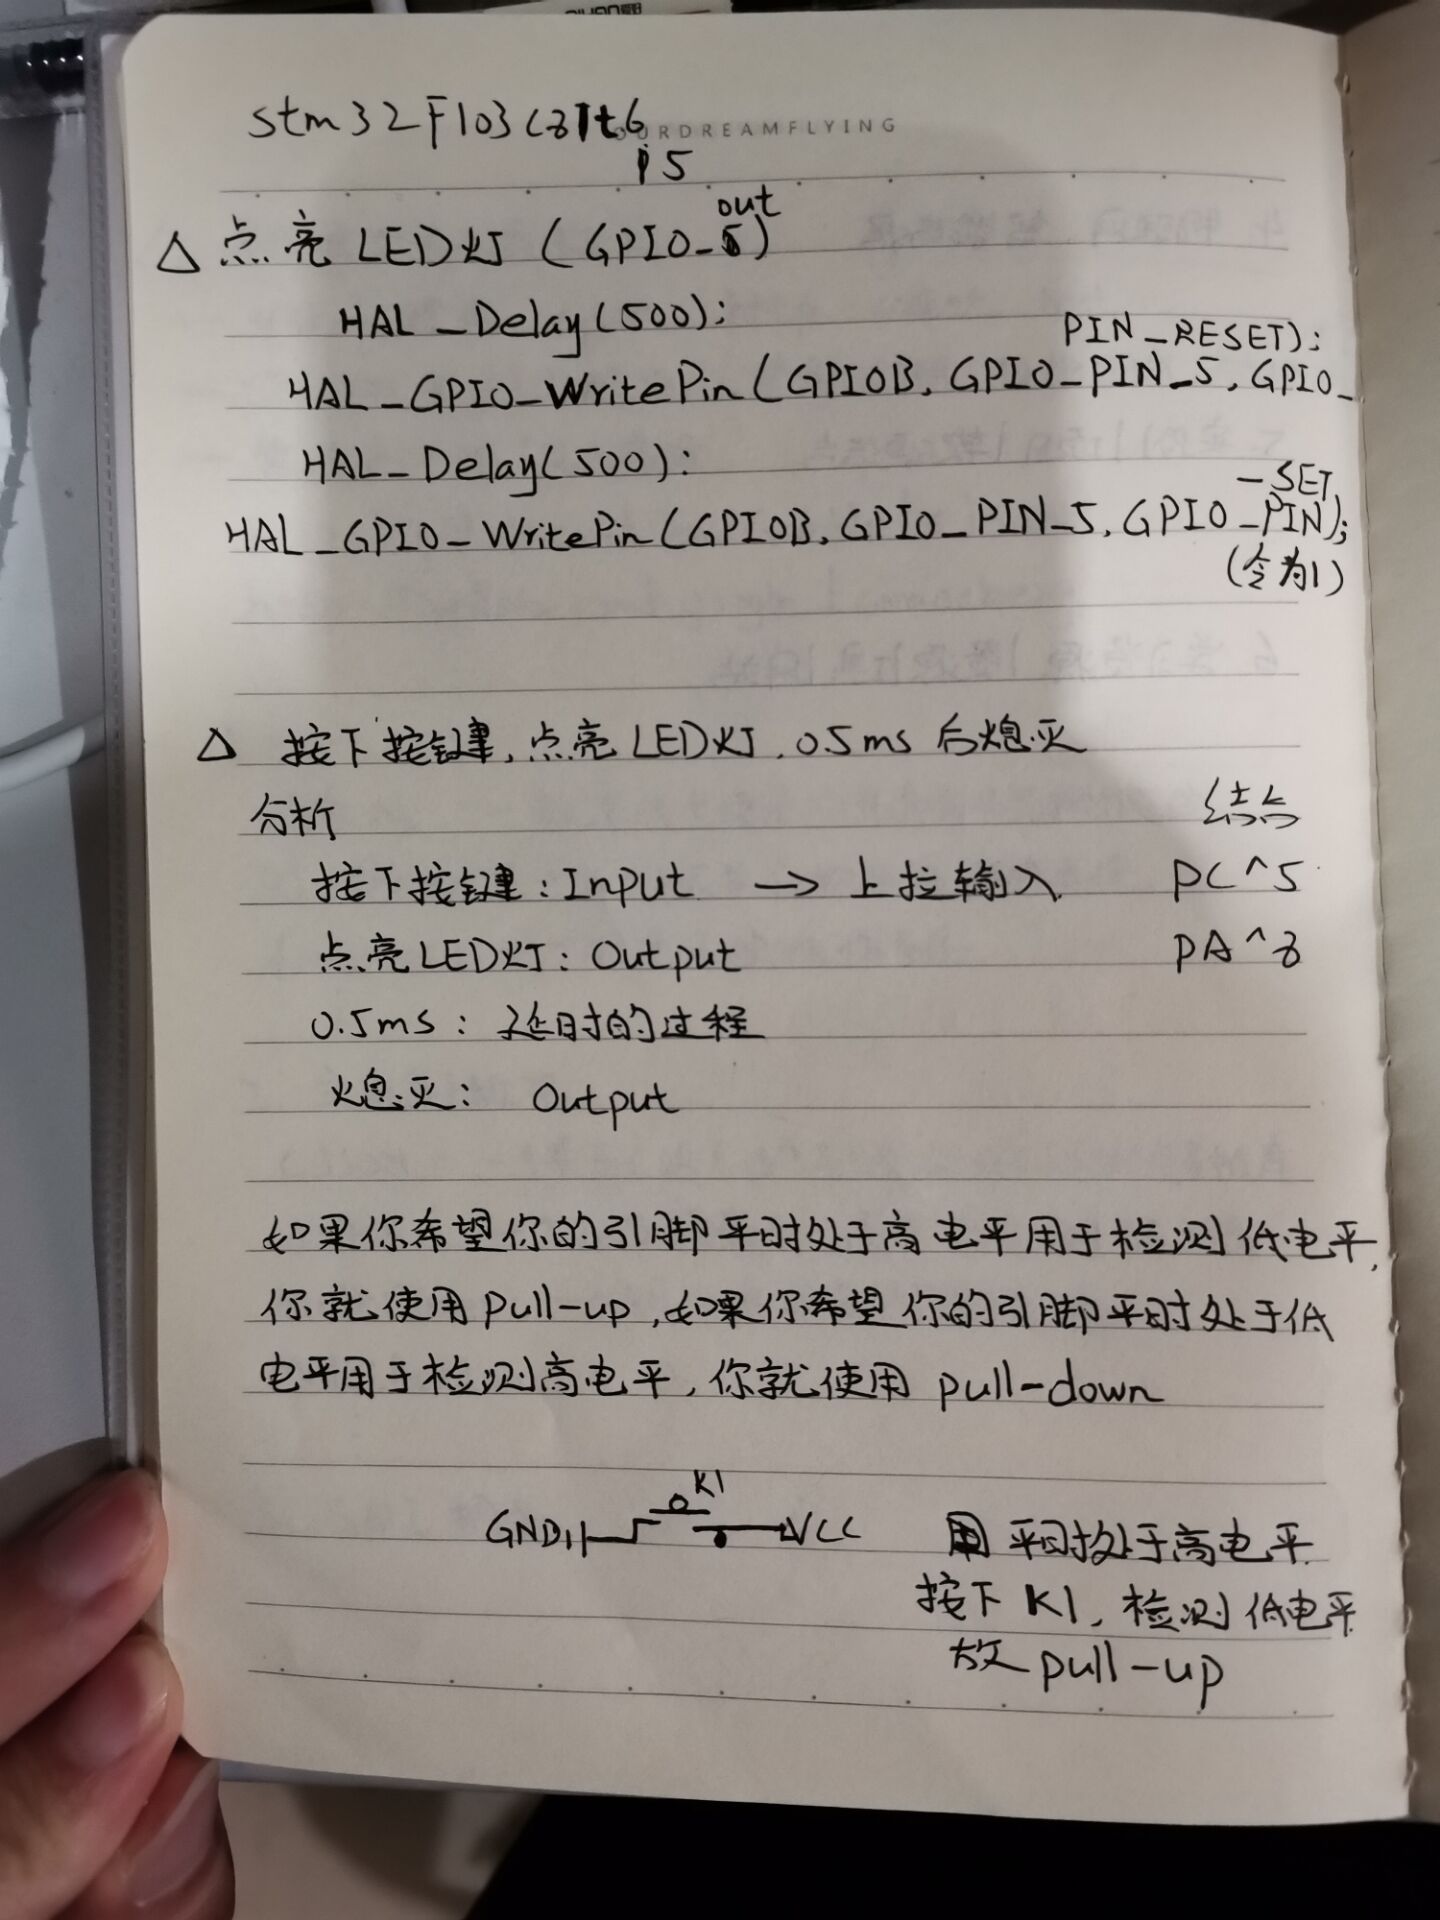 stm32F103C8Tt6
OURDREAMFLYING
P5
△ 点亮 LED灯 (GPIO_out)
HAL_Delay(500);
HAL_GPIO_WritePin(GPIOB, GPIO_PIN_5, GPIO_PIN_RESET);
HAL_Delay(500);
HAL_GPIO_WritePin(GPIOB, GPIO_PIN_5, GPIO_PIN_SET);
(令为1)
△ 按下按键, 点亮LED灯, 0.5ms后熄灭
分析 结点
按下按键: Input → 上拉输入 PC^5
点亮LED灯: Output PA^8
0.5ms: 延时的过程
熄灭: Output
如果你希望你的引脚平时处于高电平用于检测低电平,
你就使用pull-up, 如果你希望你的引脚平时处于低
电平用于检测高电平, 你就使用 pull-down
K1
GND VCC 平时处于高电平
按下K1, 检测低电平
故 pull-up